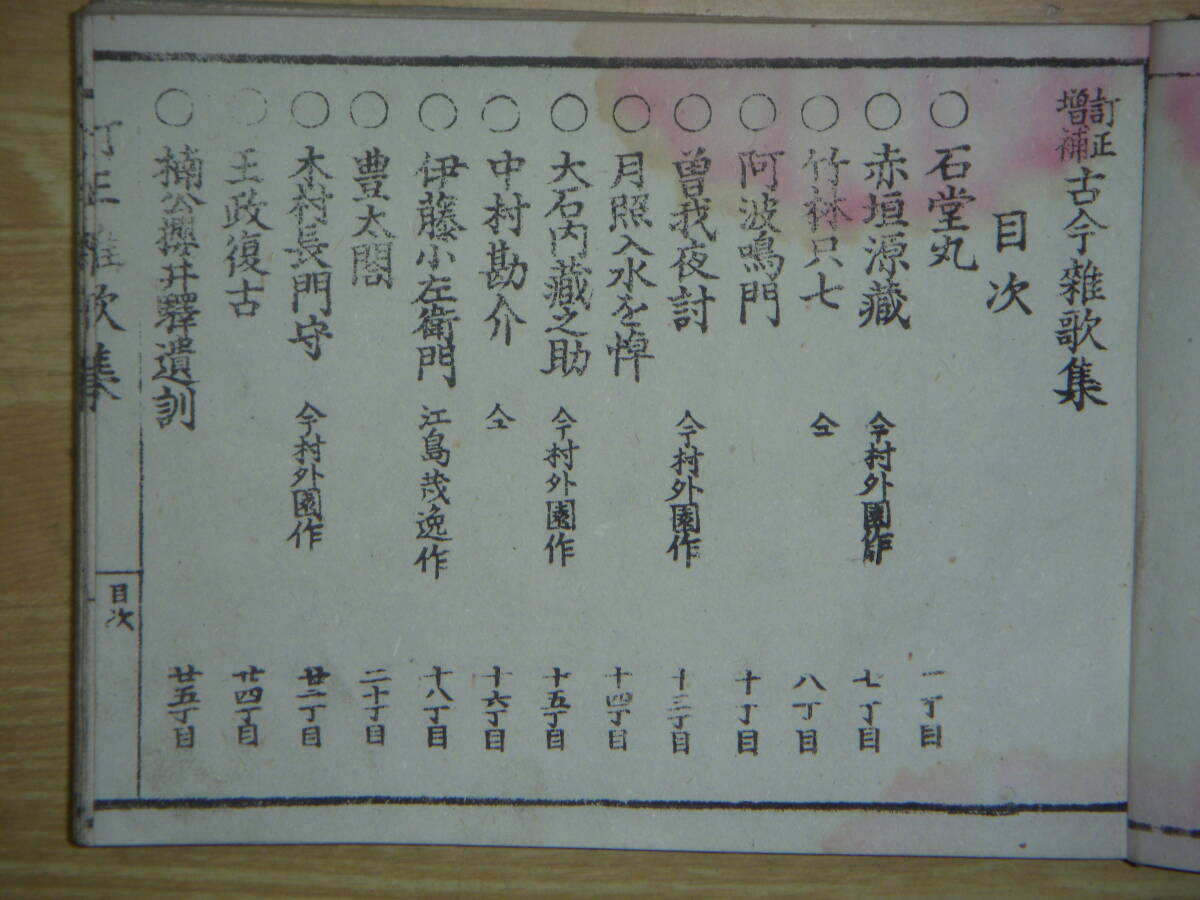 訂正増補古今雜歌集
目次
〇石堂丸 一丁目
〇赤垣源藏 今村外園作 七丁目
〇竹林只七 仝 八丁目
〇阿波鳴門 十丁目
〇曽我夜討 今村外園作 十二丁目
〇月照入水を悼 十四丁目
〇大石内藏之助 今村外園作 十五丁目
〇中村勘介 仝 十六丁目
〇伊藤小左衛門 江島茂逸作 十八丁目
〇豊太閤 二十丁目
〇木村長門守 今村外園作 廿二丁目
〇王政復古 廿四丁目
〇楠公櫻井驛遺訓 廿五丁目
訂正雜歌集 目次